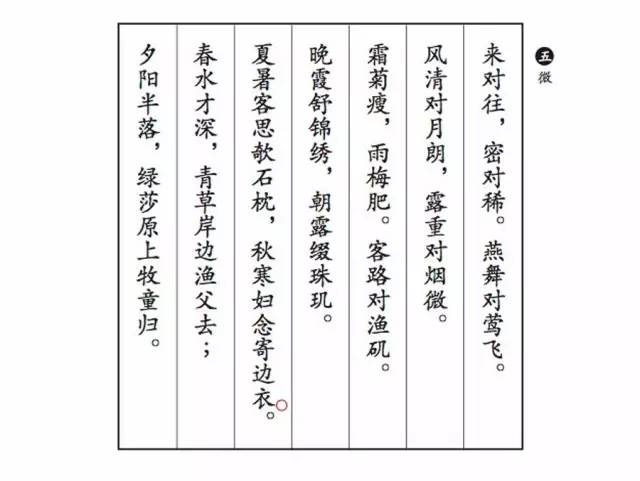 五微
来对往，密对稀。燕舞对莺飞。
风清对月朗，露重对烟微。
霜菊瘦，雨梅肥。客路对渔矶。
晚霞舒锦绣，朝露缀珠玑。
夏暑客思欹石枕，秋寒妇念寄边衣。
春水才深，青草岸边渔父去；
夕阳半落，绿莎原上牧童归。